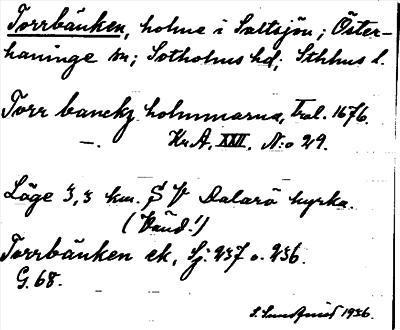 Torrbänken, holme i Saltsjön; Öster-
haninge sn; Sotholms hd; Sthlms l.
Torr banckz holmmarna, Tral. 1676.
—. KrA, XXII, N:o 29.
Läge 3,3 km. S V Dalarö kyrka.
(Vänd!)
Torrbänken ek, Sj: 237 o. 236.
G. 68.
1936.